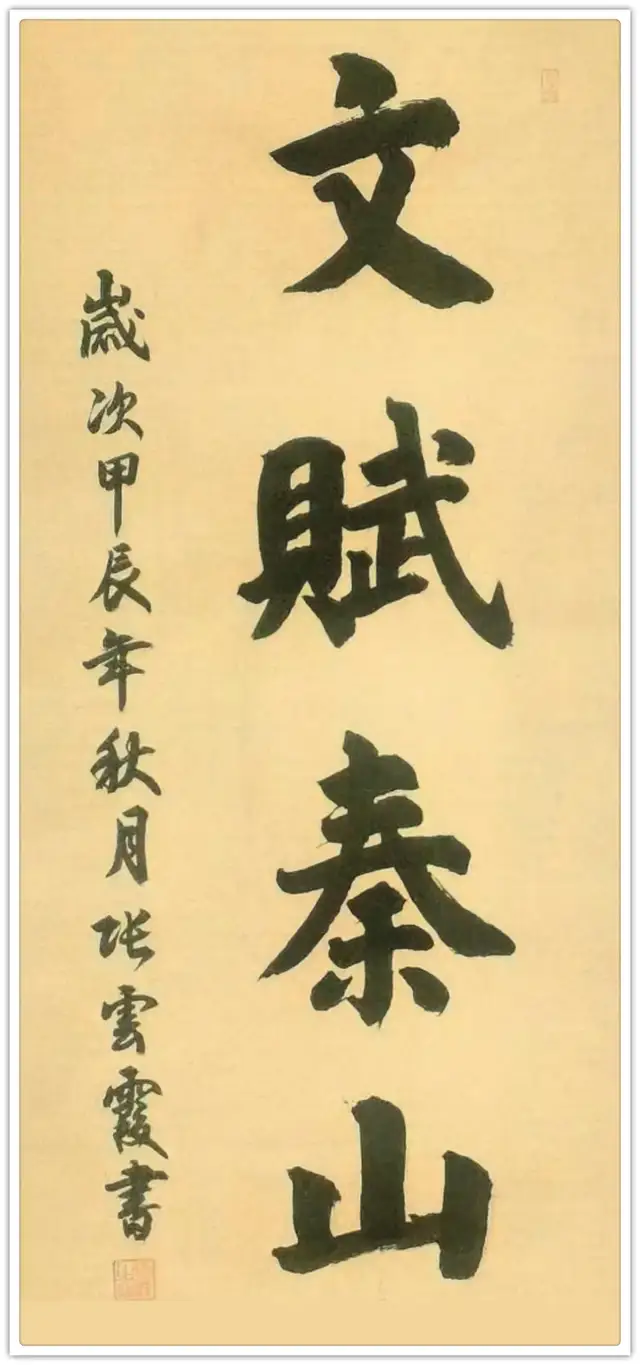 文賦秦山
歲次甲辰年秋月张雲霞書